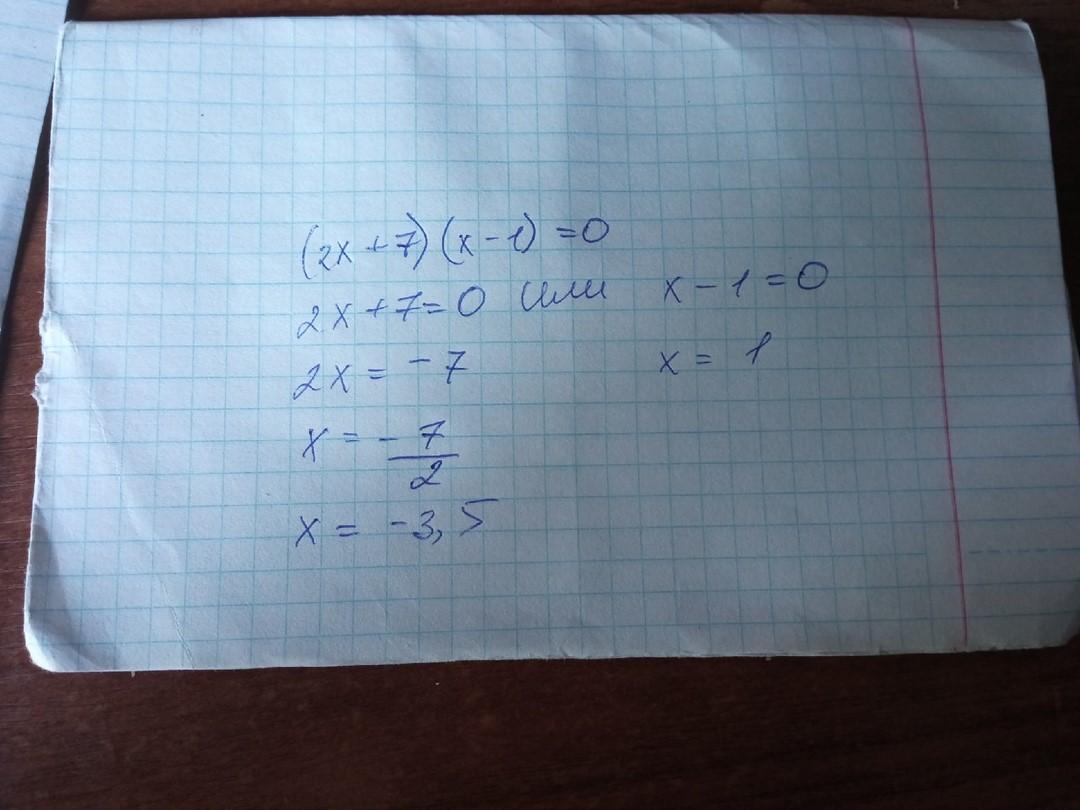 (2x+7)(x-1)=0
2x+7=0 или x-1=0
2x=-7 x=1
x=-7/2
x=-3,5